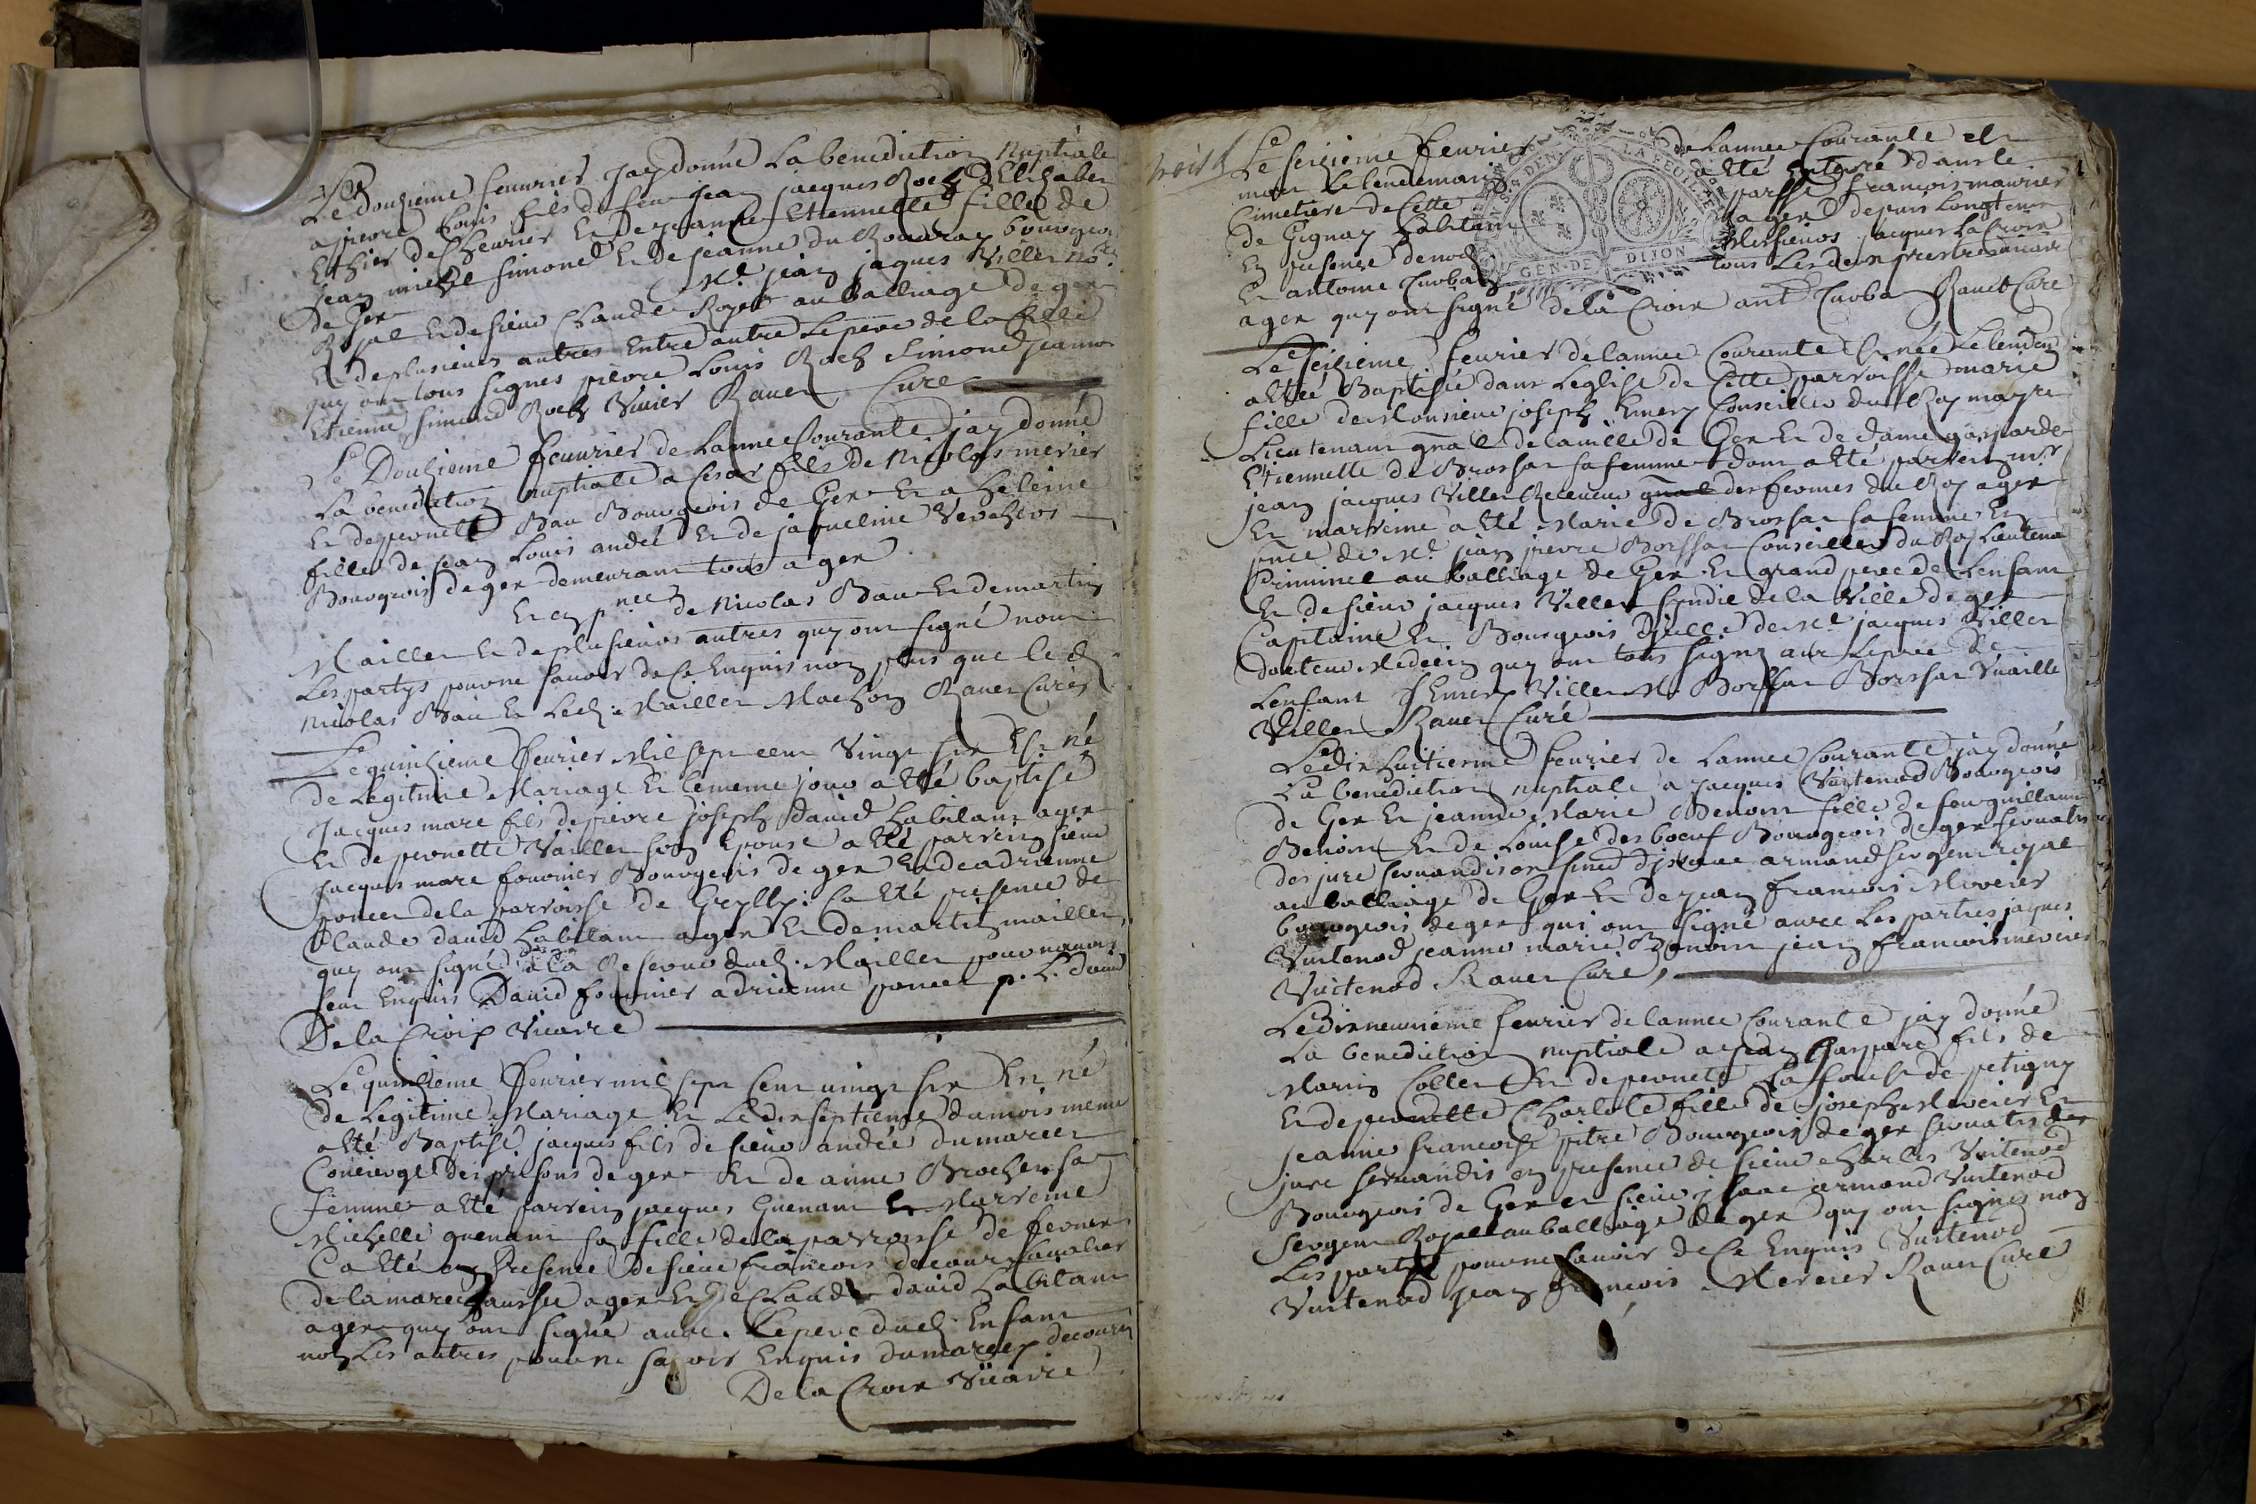 Le Douzieme feuvrier Jay donné La benediction Nuptiale
a pierre Louis fils de feu Jean jacques Roch d'Elizabeth
Ethier de Chevrier Et De jeanne Etiennette fille de
jean michel simond Et de jeanne du bourgeois
de Gex Me jean jaques Villet
Royal Et de sieur Claude Royer au balliage de gex
Et de plusieurs autres Entre autre Le pere de la fille
quy ont tous signes pierre Louis Roch simond jeanne
Etienne simond Roch Rauet Curé
Le Douzieme feuvrier de Lannee Courante jay donné
La benediction nuptiale a Cesar fils de Nicolas mercier
Et de pernette Bau Bourgeois de Gex Et a heleine
fille de jean Louis andré Et de jaqueline
Bourgeois de gex demeurant tous a gex
Et en pnce de Nicolas Bau Et de martin
Maillet Et de plusieurs autres quy ont signé non
Les partys pour ne savoir de ce Enquis non plus que le dt
Nicolas Bau Et Ledt Maillet Machon Rauet Curé
Le quinzieme feurier Mil sept cent Vingt six Est né
de Legitime Mariage Et le meme jour a Eté baptisé
Jacques marc fils de pierre joseph david habitant a gex
Et de pernette Vaillet son Epouse a Eté parrein sieur
jacques marc fournier Bourgeois de gex Et de adrienne
poncet de la parroisse de Grylly. Ca Eté presence de
Claude david habitant a gex Et de martin maillet
quy ont signé a La Reserve dudt Maillet pour
Enquis David fournier adrienne poncet p. L. david
De la Croix Vicaire
Le quinzieme feurier mil sept Cent uingt six Est né
de Legitime Mariage Et Le dix septieme du mois meme
a Eté Baptisé jacques fils de sieur andré dumarcet
Concierge des prisons de gex Et de anne Brochet sa
femme a Eté parrein jacques Guenant Et Marreine
Michelle guenant sa fille de la parroisse de fernex
Ca Eté en Presence de sieur francois decour Caualier
de la marechaussee a gex Et de Claude david habitant
a gex quy ont signé auec Le pere dudt Enfant
non Les autres pour ne sçavoir Enquis dumarcet decour
De la Croix Vicaire
Le seizieme feurier de Lannee Courante et
mort Le lendemain a Eté Enterré dans le
Cimetiere de Cette parsse francois maurier
de Gignay habitant a gex depuis Longtemps
En presence de nos Messieurs jacques La Croix
Et antoine Curbat tous Les deux prestres
a gex quy ont signé de la Croix ant Curba Rauet Curé
Le seizieme feurier de lannee Courante Est née Et lendem
a Eté Baptisée dans Leglise de Cette parroisse marie
fille de Monsieur joseph Emery Conseiller du Roy mayre
Lieutenant gñal de la uille de Gex Et de dame gasparde
Etiennette de Brossar sa femme dont a Eté parrein mr
jean jacques Villet Receveur gñal des fermes du Roy a gex
Et marreine a Eté Marie de Brossar sa femme En
pnce de Me jean pierre Borssat Conseiller du Roy Lieutenant
Criminel au balliage de Gex Et grand pere de Lenfant
Et de sieur jacques Villet syndic de la Ville de gex
Capitaine Et Bourgeois de Me jacques Villet
docteur Medecin quy ont tous signé auec Le pere de
Lenfant J Emery Villet M. Borssat Borssat
Villet Rauet Curé
Le dix huitieme feurier de Lannee Courante jay donné
La benediction nuptiale a jacques Vuitenod Bourgeois
de Gex Et jeanne Marie Benoin fille de feu guillaume
Benoin Et de Louise desboeuf Bourgeois de gex seruatis
de jure seruandis en armand sergent royal
au balliage de Gex Et de jean francois Mercier
bourgeois de gex qui ont signé auec Les parties jaques
Vuitenod jeanne marie Benoin jean francois mercier
Vuitenod Rauet Curé
Le dix neuuieme feurier de lannee Courante jay donné
La benediction nuptiale a jean Gaspard fils de
Marin Collet Et de pernette La de petigny
Et de pernette Charlote fille de joseph Mercier Et
jeanne francoise pitre Bourgeois de gex seruatis de
jure seruandis en presence de sieur charles Vuitenod
Bourgeois de Gex et sieur isaac armand Vuitenod
sergent Royal au balliage de gex quy ont signés non
Les parties pour ne sauoir de ce Enquis Vuitenod
Vuitenod jean francois Mercier Rauet Curé
GEN. DE DIJON